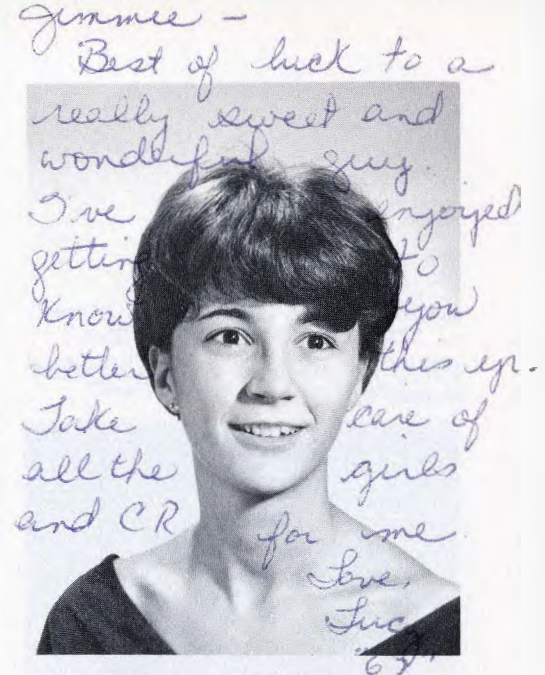 Jimmie –
Best of luck to a
really sweet and
wonderful guy.
I've enjoyed
getting to
know you
better this yr.
Take care of
all the girls
and CR for me.
Love,